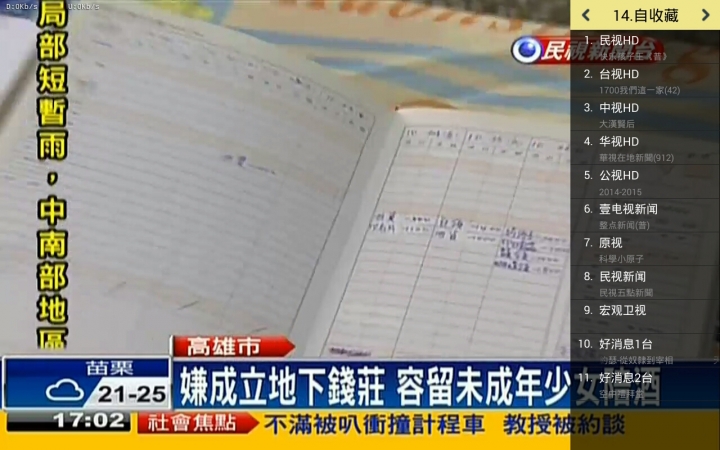 D:0Kb/s U:0Kb/s
局部短暫雨，中南部地區
民視新聞台
14.自收藏
1. 民视HD
2. 台视HD
1700我們這一家(42)
3. 中视HD
大漢賢后
4. 华视HD
華視在地新聞(912)
5. 公视HD
2014-2015
6. 壹电视新闻
整点新闻(普)
7. 原视
科學小原子
8. 民视新闻
民視五點新聞
9. 宏观卫视
10. 好消息1台
11. 好消息2台
高雄市
苗栗
21-25
嫌成立地下錢莊 容留未成年少女陪酒
17:02
社會焦點
不滿被叭衝撞計程車 教授被約談